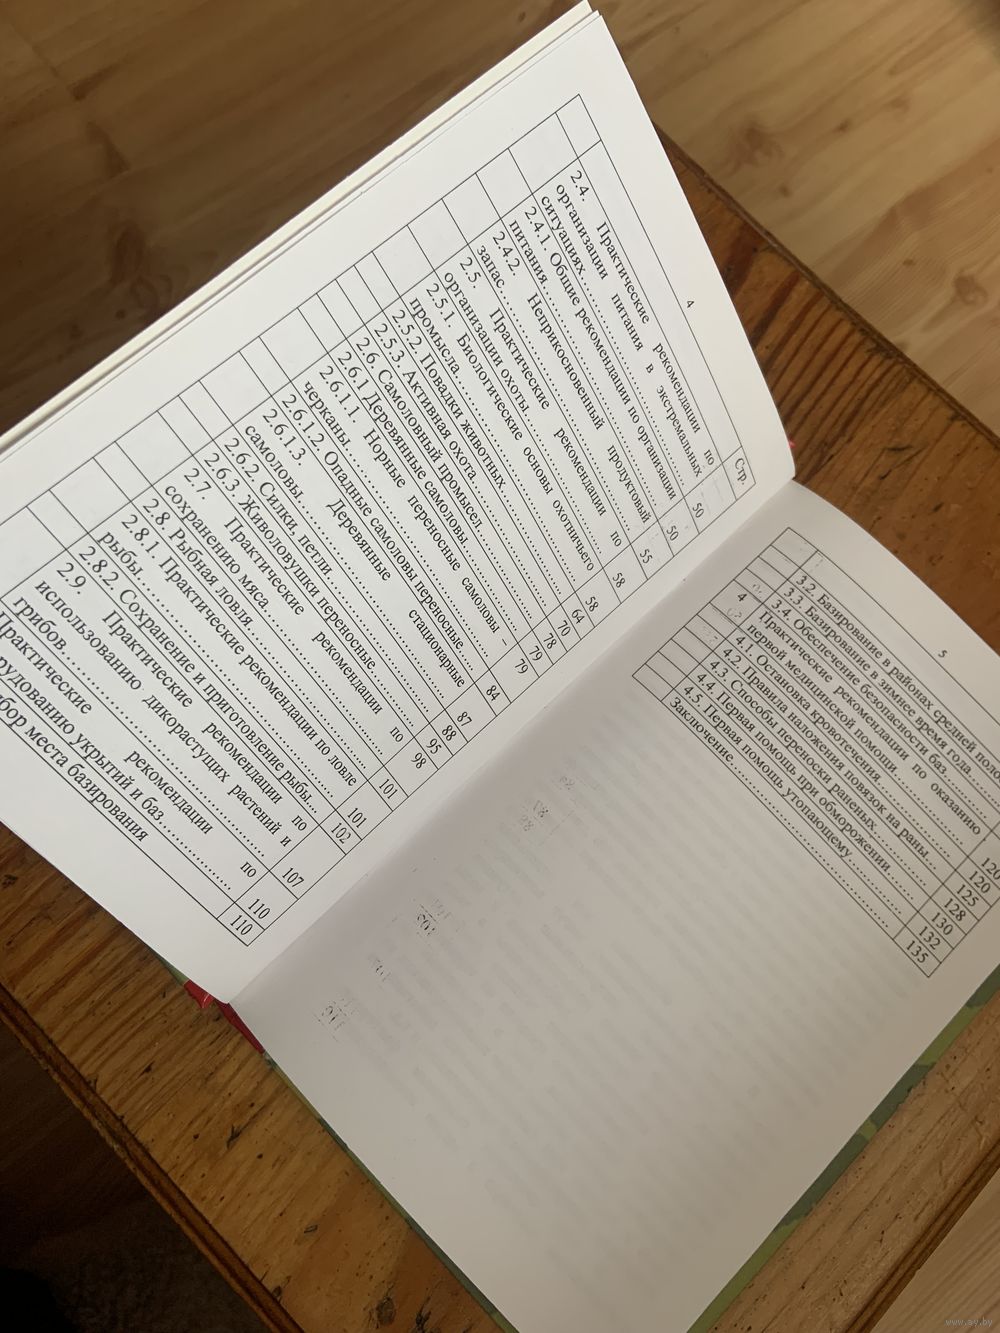 4
Стр.
2.4. Практические рекомендации по
организации питания в экстремальных
ситуациях.......... 50
2.4.1. Общие рекомендации по организации
питания.......... 50
2.4.2. Неприкосновенный продуктовый
запас.......... 55
2.5. Практические рекомендации по
организации охоты.......... 58
2.5.1. Биологические основы охотничьего
промысла.......... 58
2.5.2. Повадки животных.......... 64
2.5.3. Активная охота.......... 70
2.6 Самоловный промысел.......... 78
2.6.1 Деревянные самоловы.......... 79
2.6.1.1. Норные переносные самоловы –
черканы.......... 79
2.6.1.2. Опадные самоловы переносные.... 84
2.6.1.3. Деревянные стационарные
самоловы.......... 87
2.6.2 Силки, петли.......... 88
2.6.3. Живоловушки переносные.......... 95
2.7. Практические рекомендации по
сохранению мяса.......... 98
2.8. Рыбная ловля.......... 101
2.8.1 Практические рекомендации по ловле
рыбы.......... 101
2.8.2. Сохранение и приготовление рыбы... 102
2.9. Практические рекомендации по
использованию дикорастущих растений и
грибов.......... 107
Практические рекомендации по
рудованию укрытий и баз.......... 110
бор места базирования 110
5
3.2. Базирование в районах средней поло
3.3 Базирование в зимнее время года..........
3.4. Обеспечение безопасности баз.......... 120
4 Практические рекомендации по оказанию
первой медицинской помощи.......... 120
4.1. Остановка кровотечения..........
4.2. Правила наложения повязок на раны.... 125
4.3. Способы переноски раненых.......... 128
4.4. Первая помощь при обморожении.......... 130
4.5. Первая помощь утопающему.......... 132
Заключение.......... 135
www.ay.by